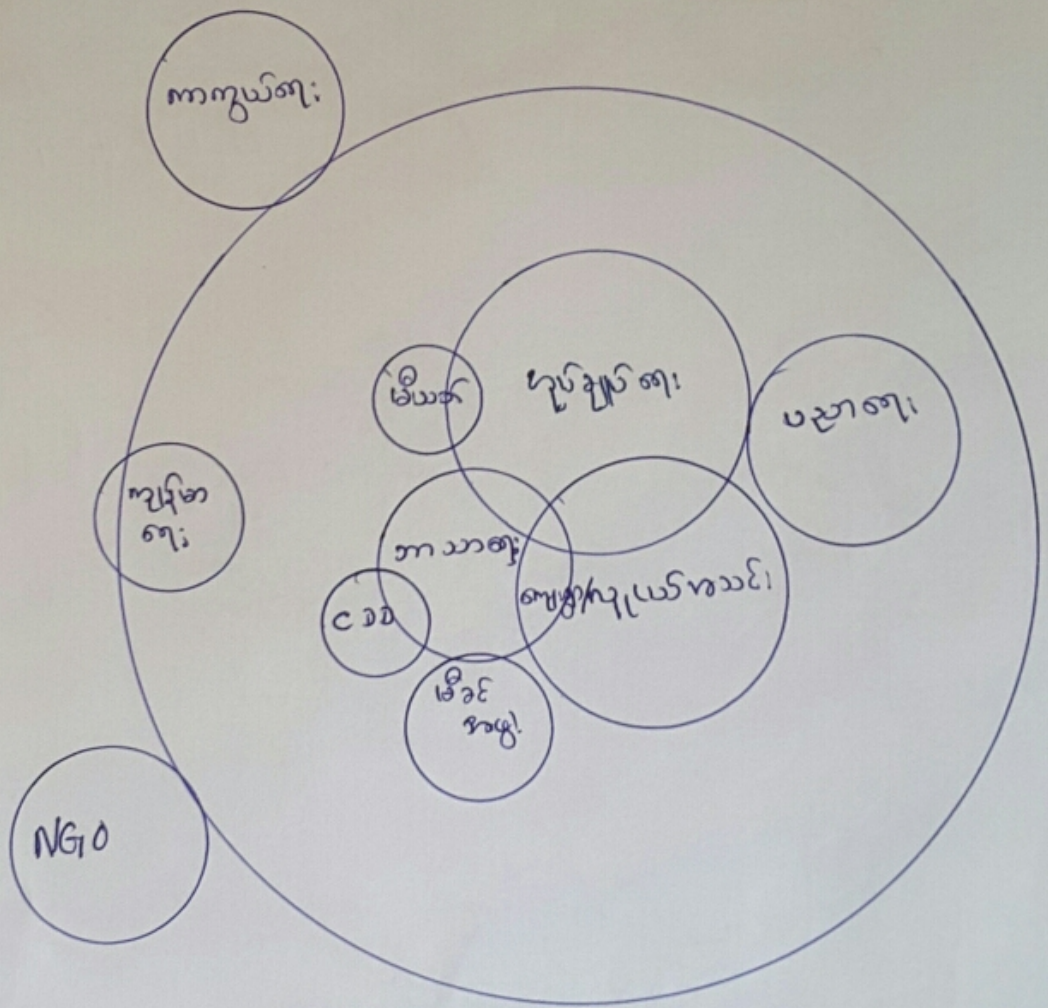 ကာကွယ်ရေး
အုပ်ချုပ်ရေး
မီယက်
ပညာရေး
ကျန်းမာ
ရေး
ဘာသာရေး
ကျေးရွာ/လူငယ်အသင်း
CDD
မိခင်
အဖွဲ့
NGO